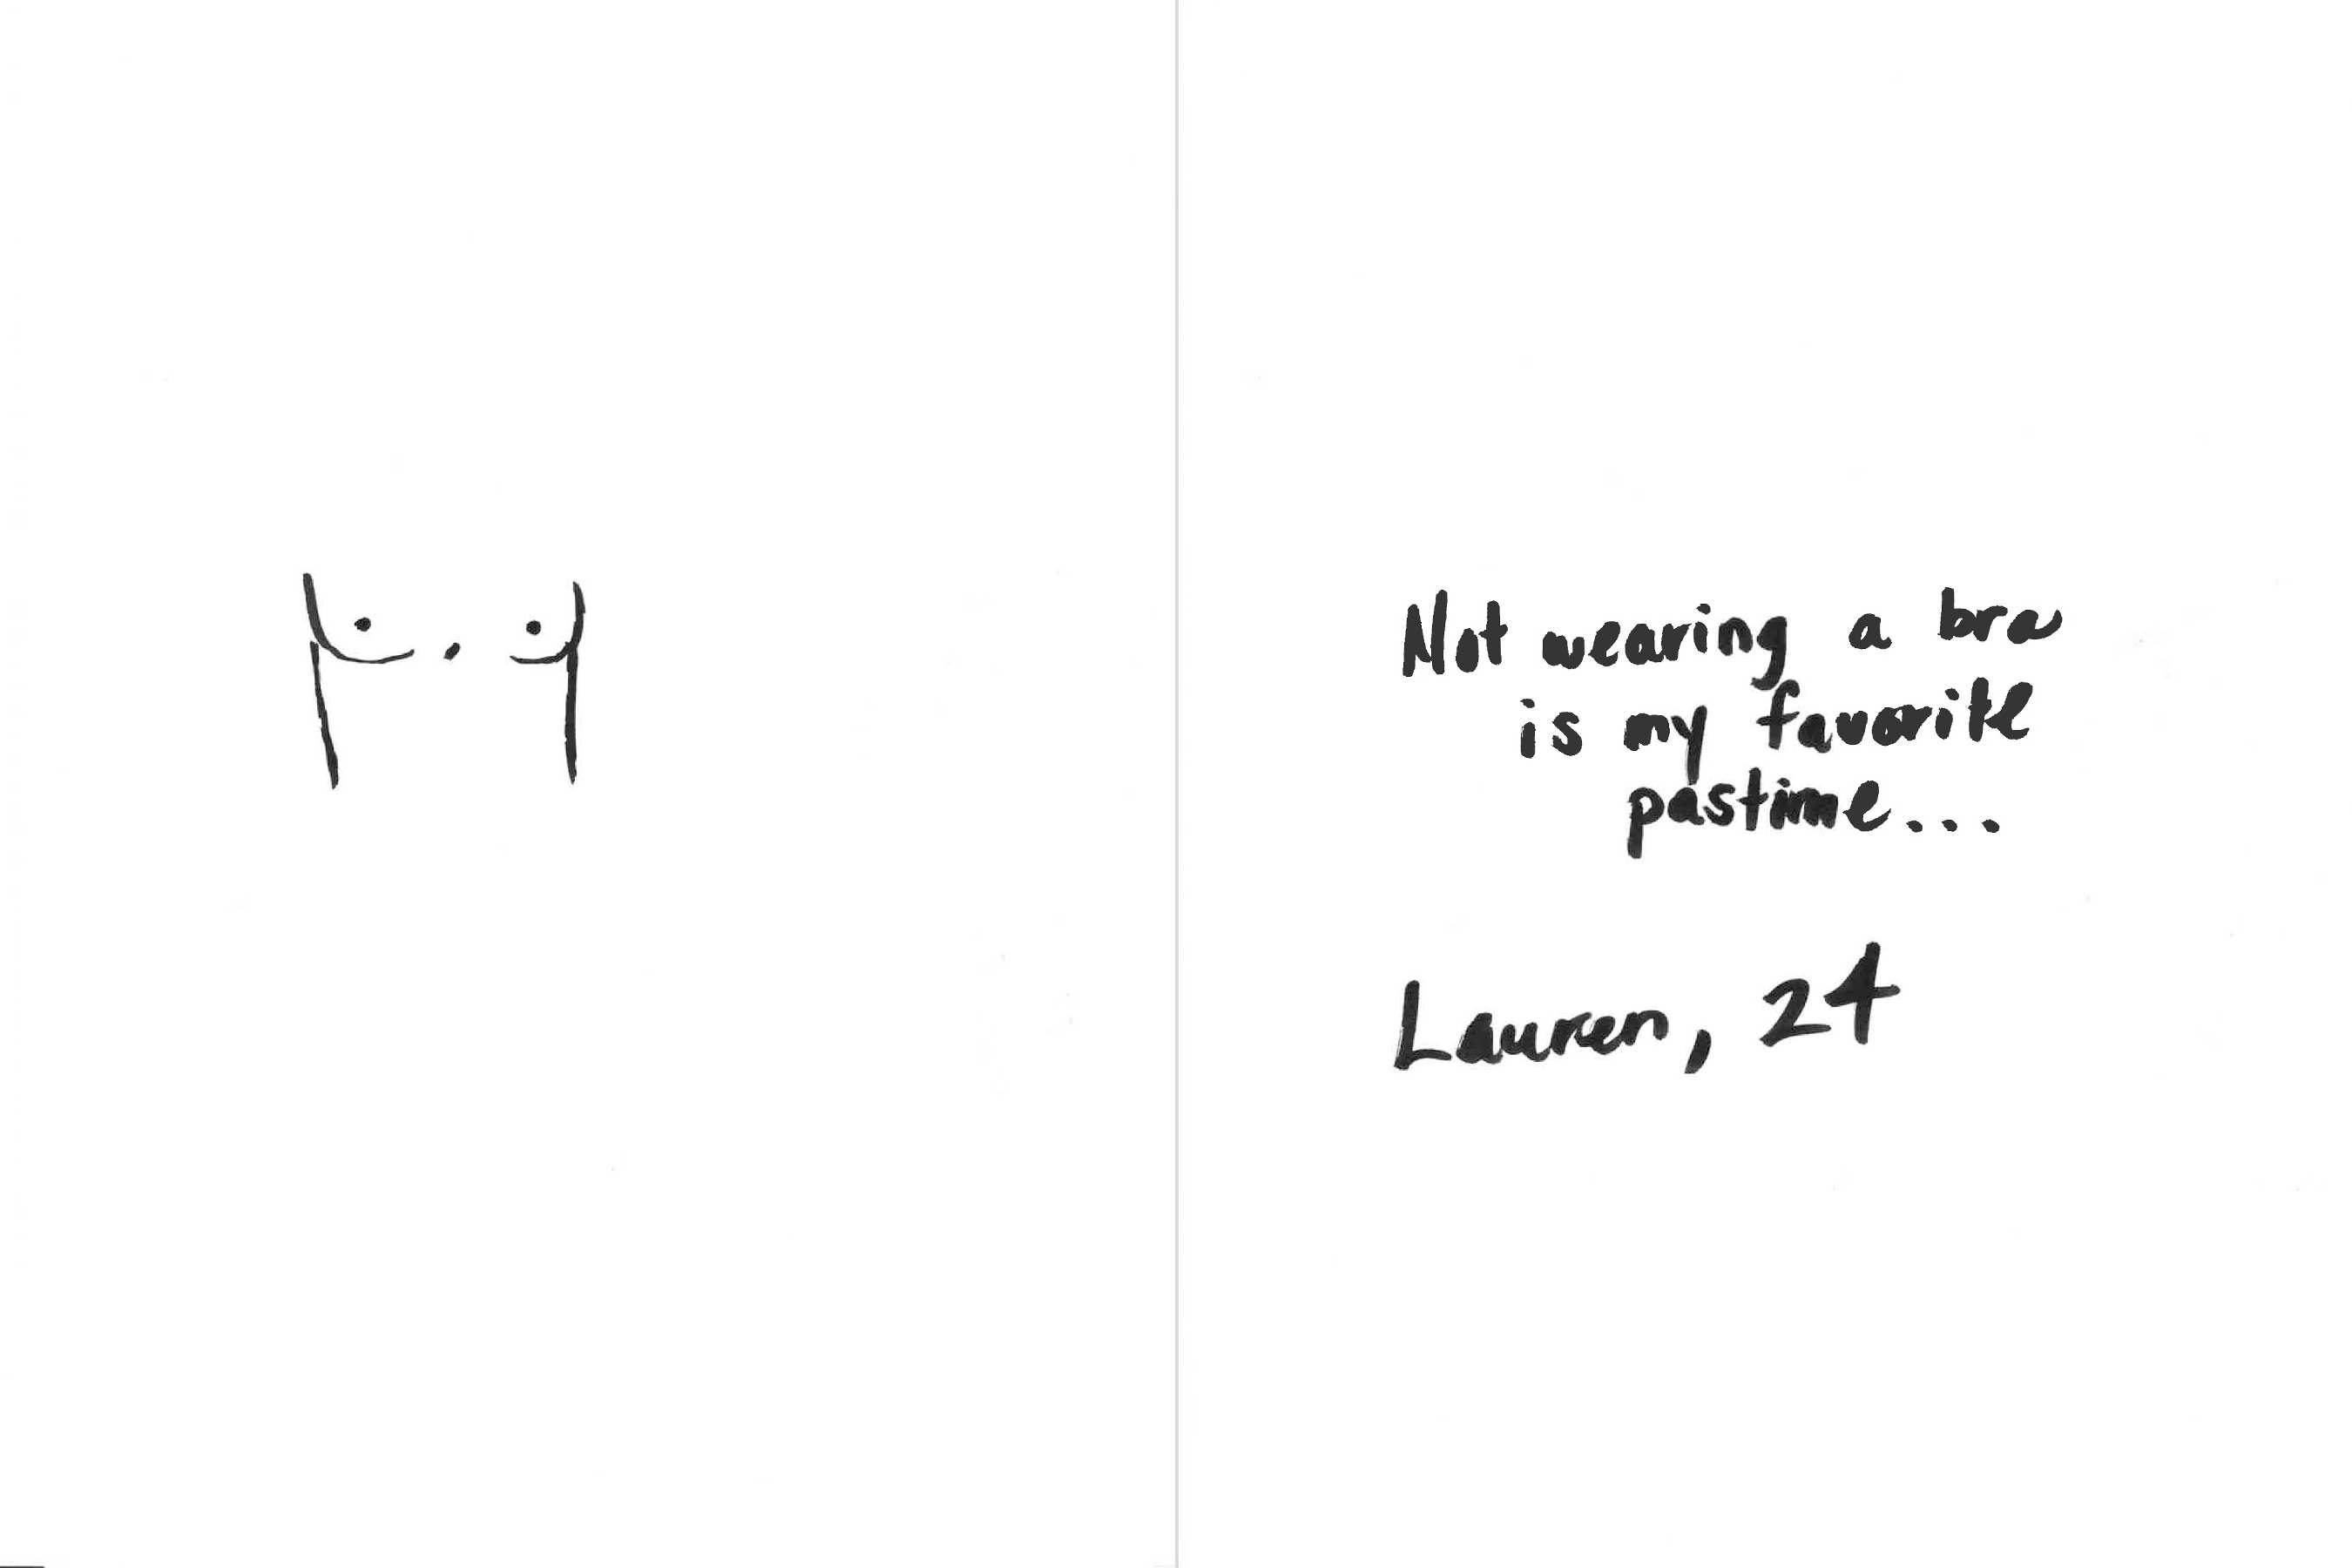 Not wearing a bra
is my favorite
pastime...
Lauren, 24